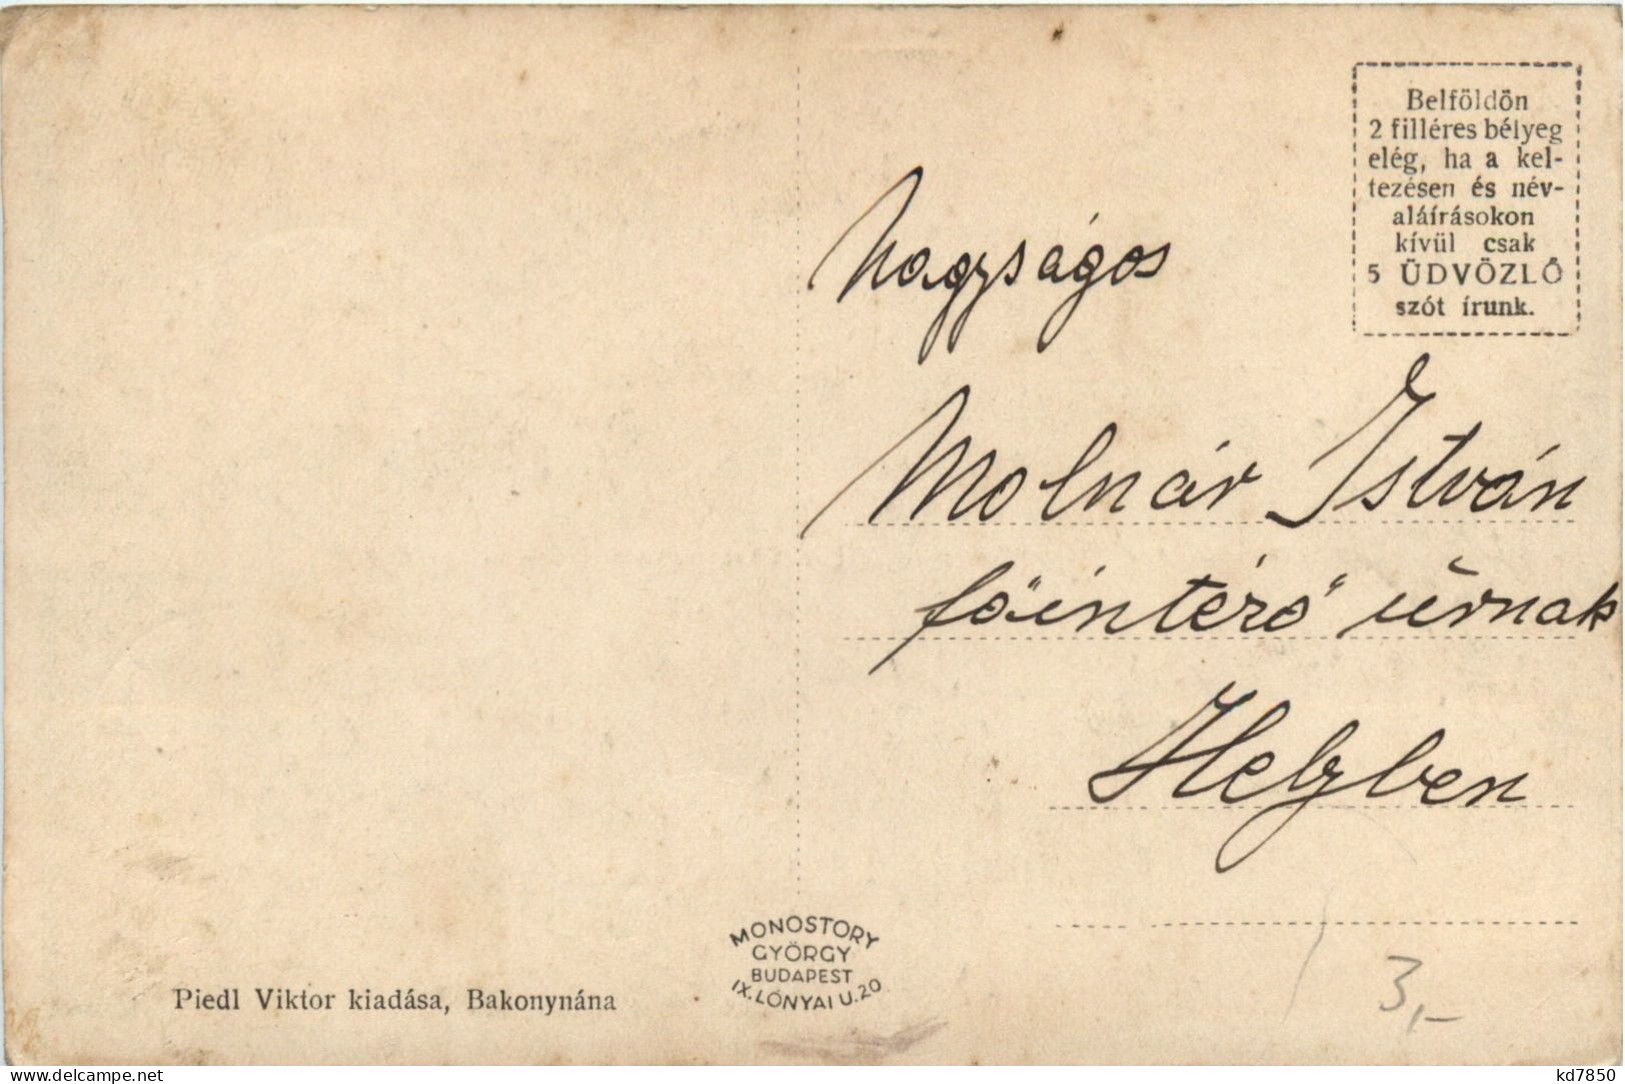 Belföldön
2 filléres bélyeg
elég, ha a kel-
tezésen és név-
aláírásokon
kívül csak
5 ÜDVÖZLŐ
szót írunk.
Nagyságos
Molnár István
főintéző úrnak
Helyben
MONOSTORY
GYÖRGY
BUDAPEST
IX. LÓNYAI U. 20
Piedl Viktor kiadása, Bakonynána
3,-
www.delcampe.net
kd7850